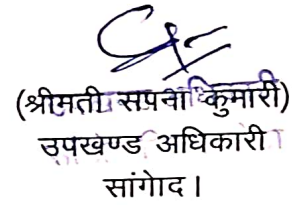 (श्रीमती सपना कुमारी)
उपखण्ड अधिकारी
सांगेाद।